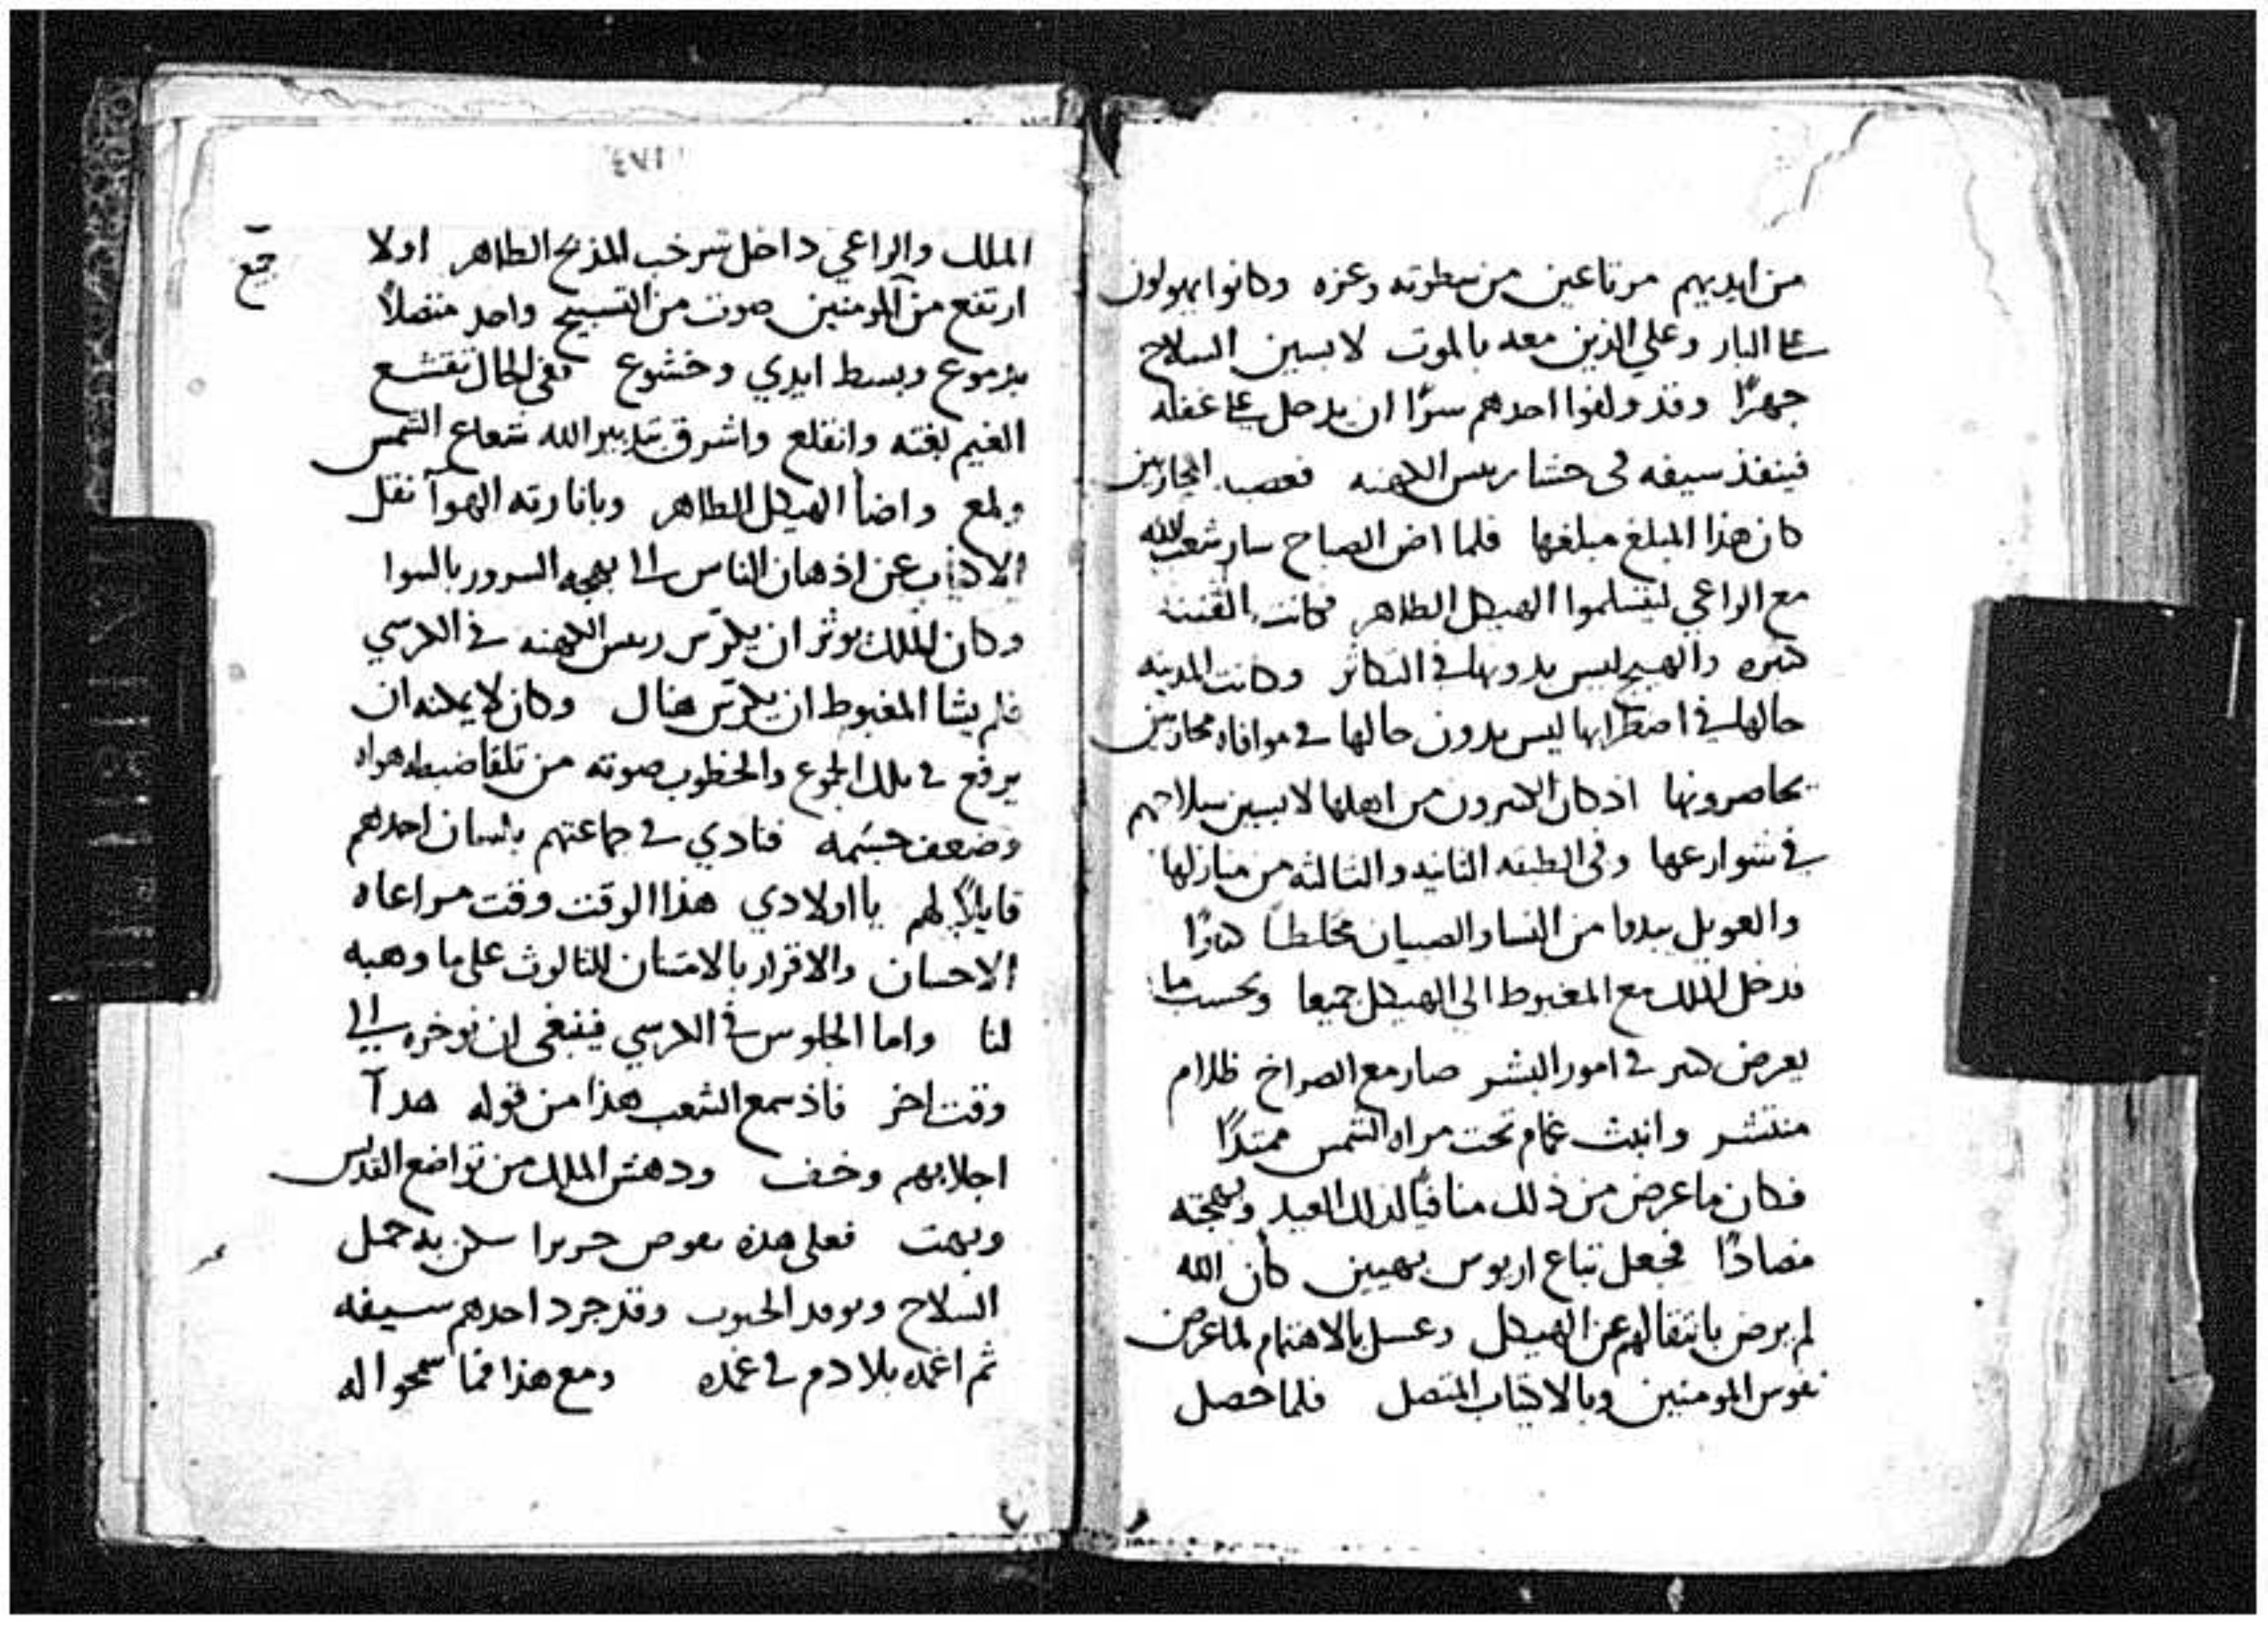 من ايديهم مرتاعين من سطوته وعزه وكانوا يهولون
على البار وعلي الذين معه بالموت لابسين السلاح
جهرًا وقد ولفوا احدهم سرًا ان يدخل على غفله
فينفذ سيفه في حشا ريس الكهنه المحاربين
كان هذا المبلغ مبلغها فلما اضى الصباح سار شعب الله
مع الراعي ليتسلموا الهيكل الطاهر فكانت الفتنه
كثيره والهيج ليس بدونها في التكاثر وكانت المدينه
حالها في اضطرابها ليس بدون حالها في موافاه محاربين
يحاصرونها اذ كان الكثيرون من اهلها لابسين سلاحهم
في شوارعها وفي الطبقه الثانيه والثالثه من منازلها
والعويل من النسا والصبيان مختلطًا
فدخل الملك مع المغبوط الى الهيكل جميعا وبحسب ما
يعرض كثير في امور البشر صار مع الصراخ ظلام
منتشر وانبث غمام تحت مراه الشمس ممتدًا
فكان ما عرض من ذلك منافيًا لذلك العيد وبهجته
مضادًا فجعل تباع اريوس بهيين كأن الله
لم يرض بانتقالهم عن الهيكل بالاهتمام لما عرض
نفوس المومنين وبالاكتياب المتصل فلما حصل
٤٨١
الملك والراعي داخل المذبح الطاهر اولا
ارتفع من المومنين صوت من التسبيح واحد متصلاً
بدموع وبسط ايدي وخشوع ففي الحال تقشع
الغيم بغته وانقلع واشرق بتدبير الله شعاع الشمس
ولمع واضأ الهيكل الطاهر وبانارته الهوآ نقل
عن اذهان الناس الى بهجه السرور بالسوا
وكان الملك يوثر ان يكرس ريس الكهنه في الكرسي
فلم يشا المغبوط ان يكرس هناك وكان لا يمكنه ان
يرفع في تلك الجموع والخطوب صوته من تلقا ضبطه هواه
وضعف جسمه فنادي في جماعتهم بلسان احدهم
قايلاً لهم يا اولادي هذا الوقت وقت مراعاه
الاحسان والاقرار بالامتنان للثالوث على ما وهبه
لنا واما الجلوس في الكرسي فينبغي ان نوخره الى
وقت اخر فاذ سمع الشعب هذا من قوله هدآ
اجلابهم وخف ودهش الملك من تواضع القديس
وبهت فعلى هذه حمل
السلاح وقد جرد احدهم سيفه
ثم اغمده بلا دم في غمده ومع هذا فما سمحوا له
جمع